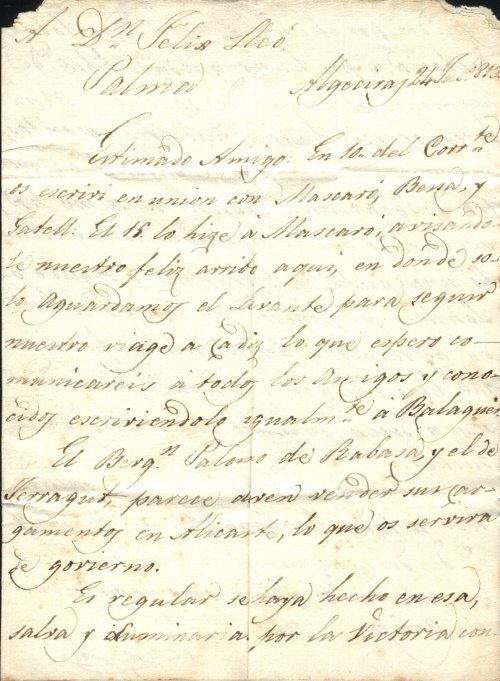 A Dn. Felix Lleó.
Palma Algeciras 24 Jul.o 813
Estimado Amigo: En 10 del Corrte
os escriví en union con Mascaró, Bensa, y
Satell: El 15 lo hize á Mascaró, avisando-
le nuestro feliz arribo aqui, en donde so-
lo aguardamos el Levante para seguir
nuestro viage a Cadiz lo que espero co-
municareis á todos los Amigos y cono-
cidos escriviendolo igualm.te á Balaguer
El Bergn. Palomo de Rabasa, y el de
Ferragut, parece deven vender sus car-
gamentos en Alicante, lo que os servira
de govierno.
Es regular se haya hecho en esa,
salva y iluminaria por la Victoria con